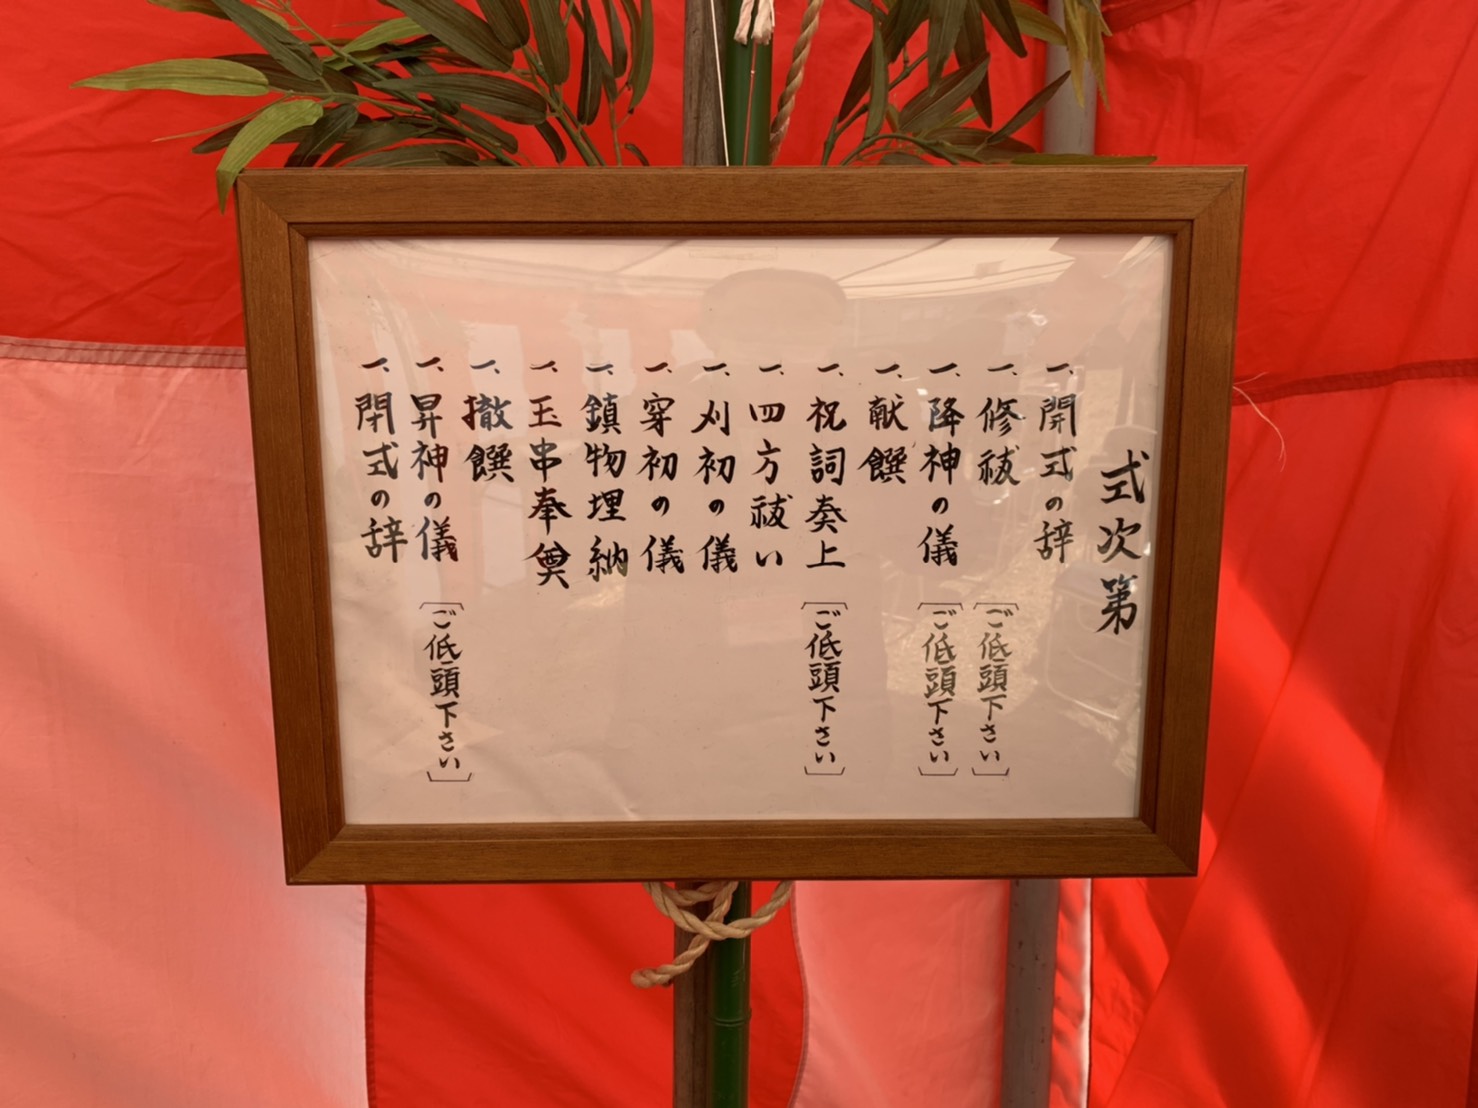 式次第
一、開式の辞
一、修祓 〔ご低頭下さい〕
一、降神の儀 〔ご低頭下さい〕
一、献饌
一、祝詞奏上 〔ご低頭下さい〕
一、四方祓い
一、刈初の儀
一、穿初の儀
一、鎮物埋納
一、玉串奉奠
一、撤饌
一、昇神の儀 〔ご低頭下さい〕
一、閉式の辞